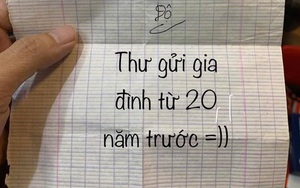 Đô
Thư gửi gia
đình từ 20
năm trước =))